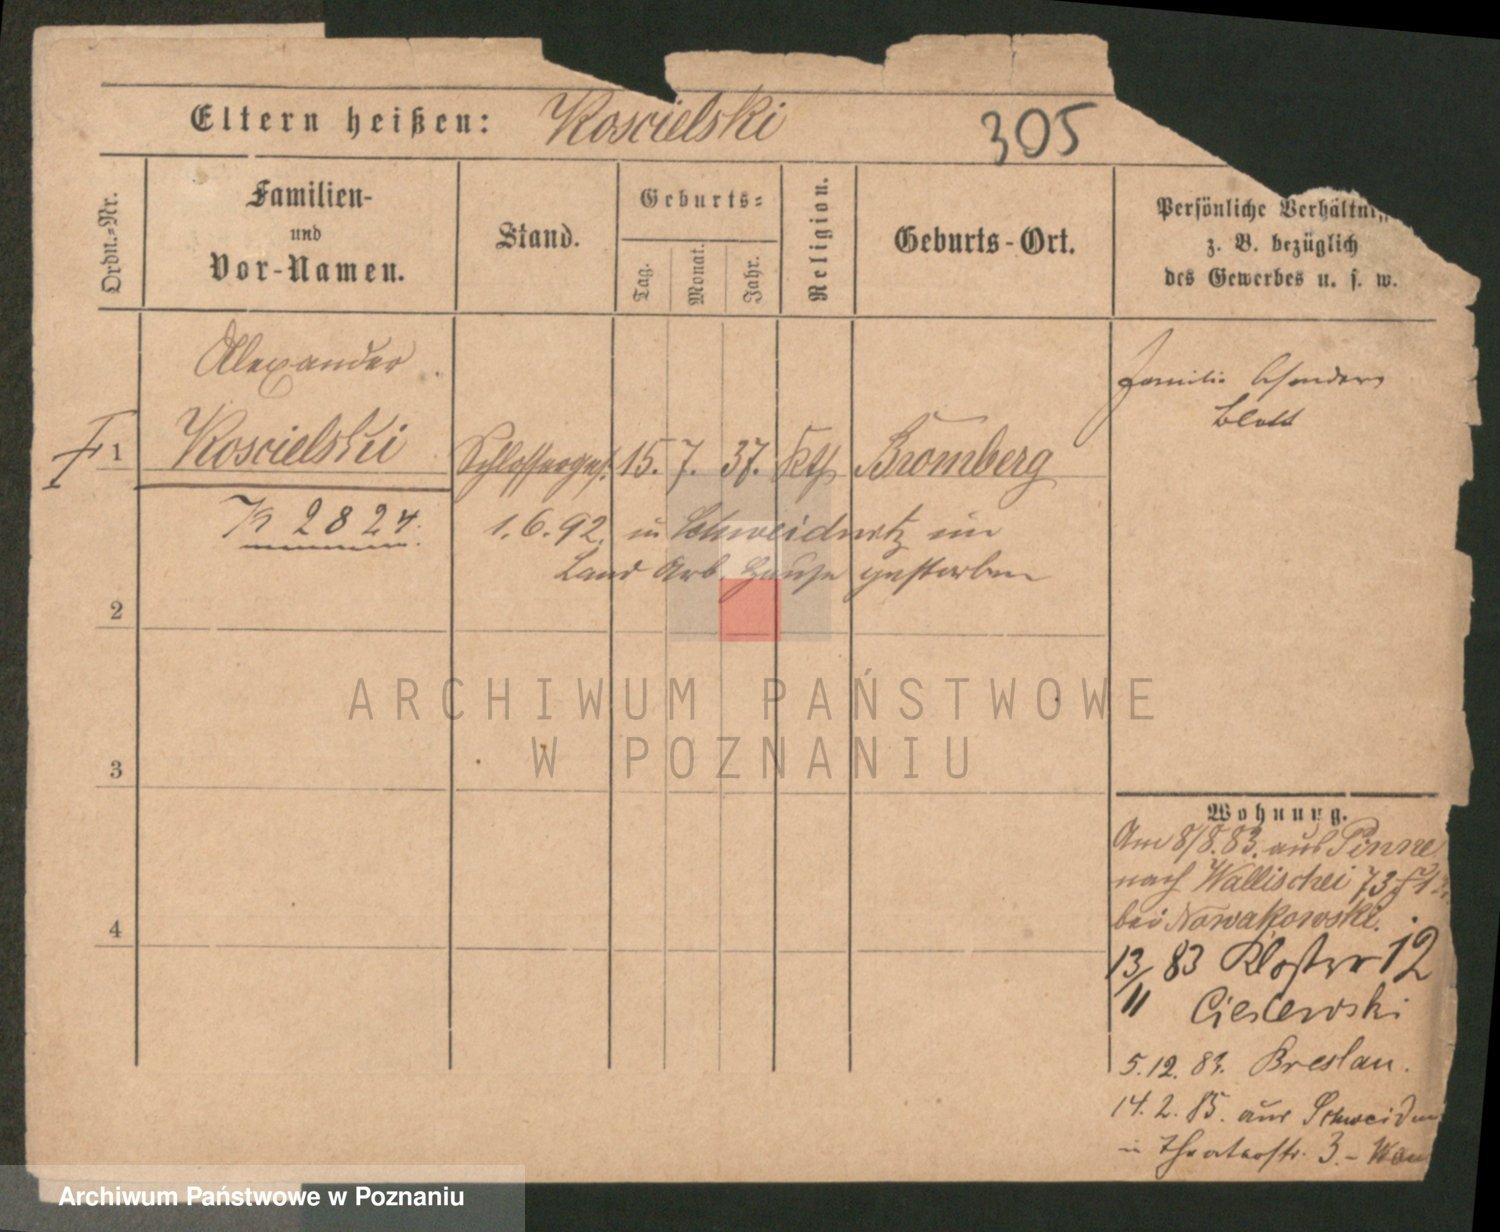 Eltern heißen: Koscielski 305
Ordn.-Nr.
Familien-
und
Vor-Namen.
Stand.
Geburts-
Tag. Monat. Jahr.
Religion.
Geburts-Ort.
Persönliche Verhältniss
z. B. bezüglich
des Gewerbes u. s. w.
Alexander
1 Koscielski Schlosserges. 15. 7. 37. kth Bromberg
Familie besonders
Blatt
2824.
1.6.92. in Schweidnitz im
Land Arb. Hause gestorben
2
3
4
Wohnung.
Am 8/8.83. aus Pinne
nach Wallischei 73
bei Nowakowski.
13/11 83 Kloster 12
Cieslewski
5.12.83. Breslau.
14.2.85. aus Schweidn
in Theaterstr. 3.-
ARCHIWUM PAŃSTWOWE
W POZNANIU
Archiwum Państwowe w Poznaniu